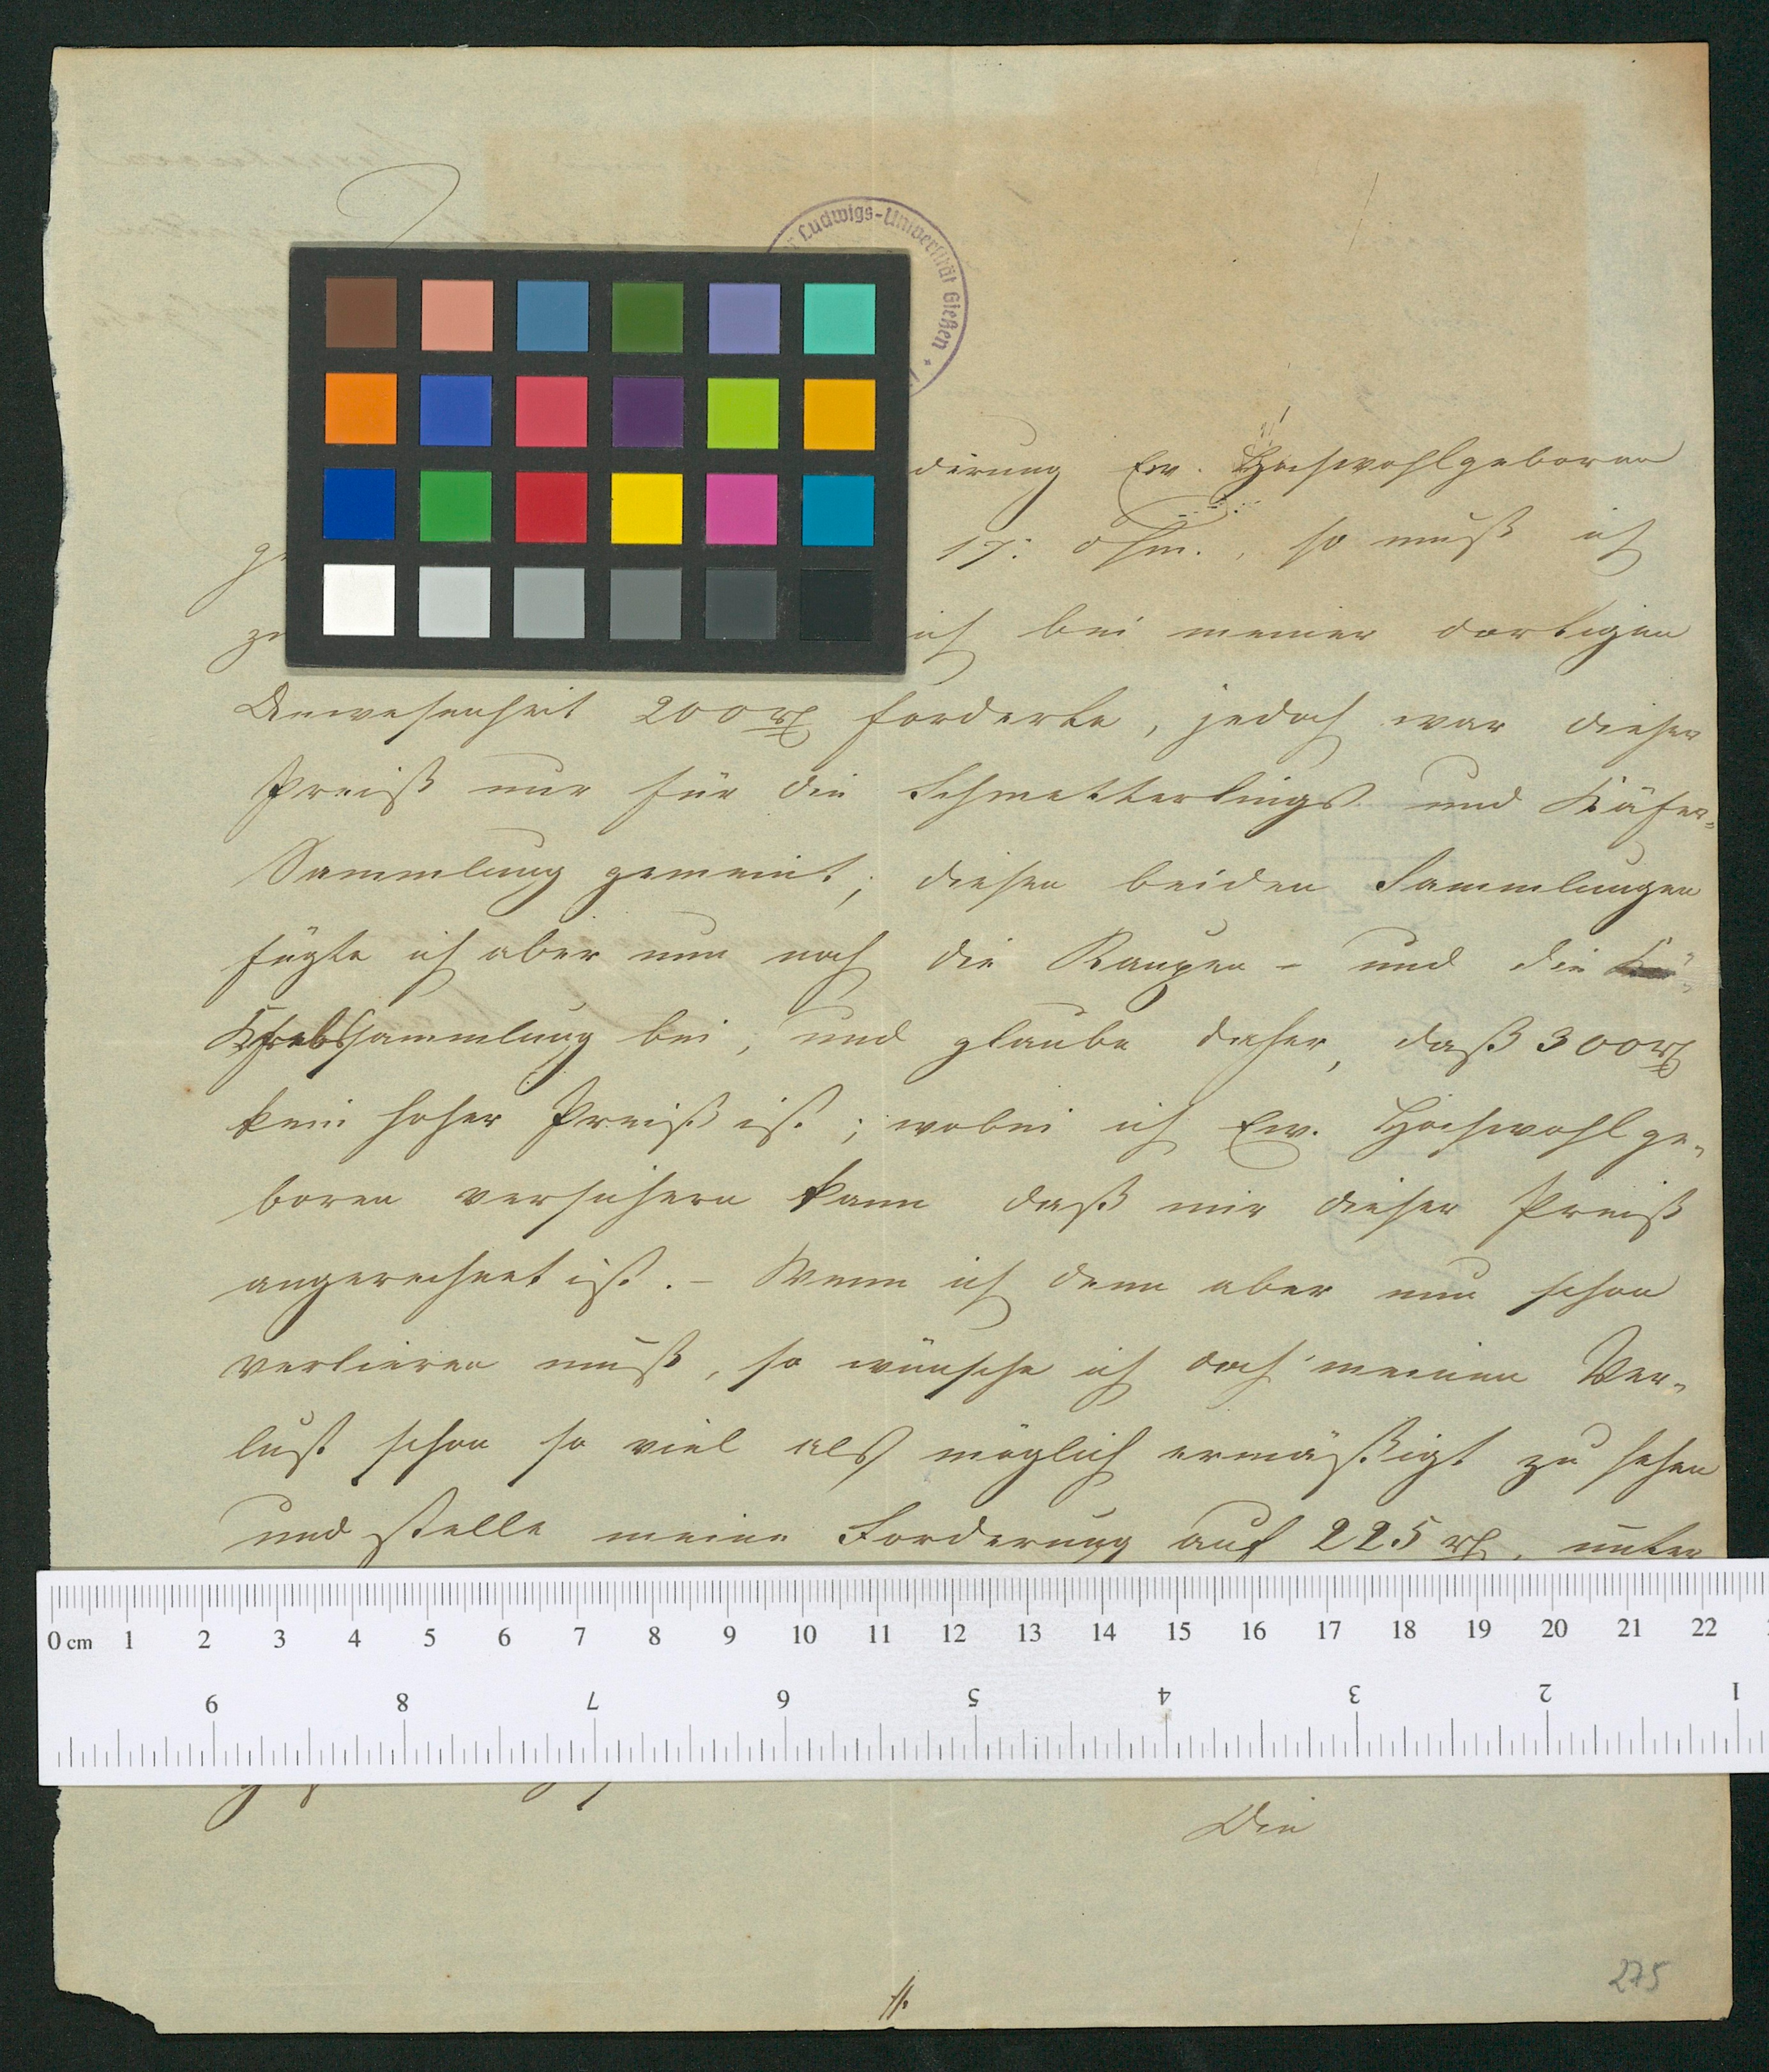 Ludwigs-Universität Gießen
derung Ew. Hochwohlgeboren
17. , so muß ich
ich bei meiner dortigen
Anwesenheit 200 rℓ forderte, jedoch war dieser
Preiß nur für die Schmetterlings und Käfer-
Sammlung gemeint; diesen beiden Sammlungen
fügte ich aber nun noch die Raupen- und die
Krebssammlung bei, und glaube daher, daß 300 rℓ
kein hoher Preiß ist; wobei ich Ew. Hochwohlge-
boren versichern kann daß mir dieser Preiß
angerechnet ist. – Wenn ich denn aber nun schon
verlieren muß, so wünsche ich doch meinen Ver-
lust schon so viel als möglich ermäßigt zu sehen
und stelle meine Forderung auf 225 rℓ, unter
0 cm 1 2 3 4 5 6 7 8 9 10 11 12 13 14 15 16 17 18 19 20 21 22
9 8 7 6 5 4 3 2 1
Die
275